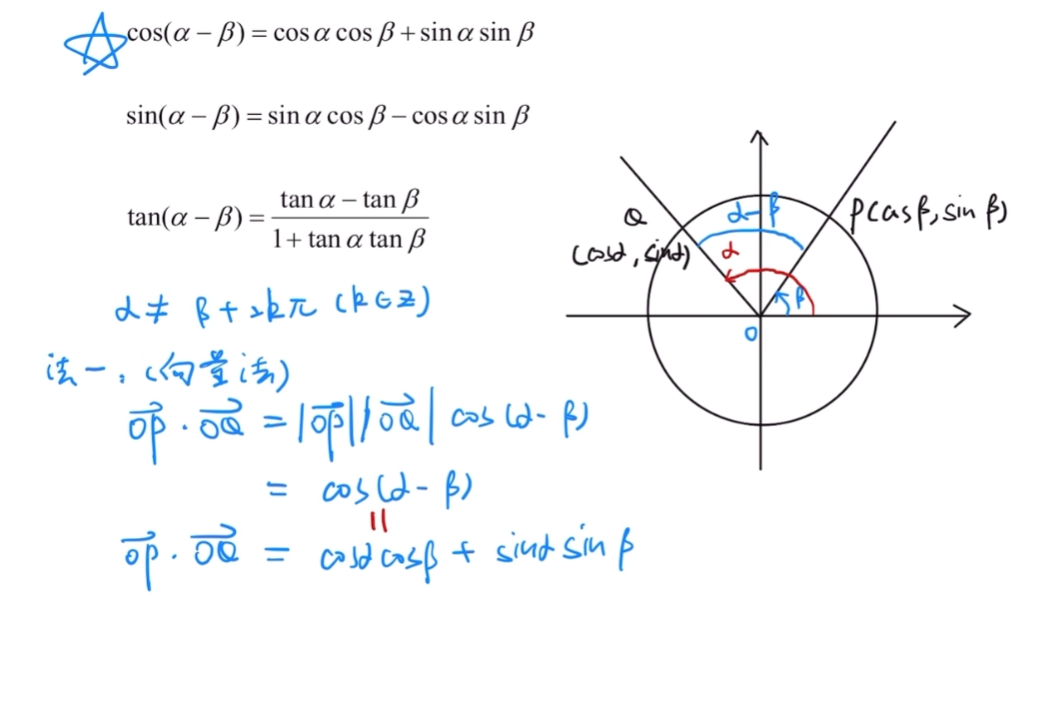 cos(α − β) = cos α cos β + sin α sin β
sin(α − β) = sin α cos β − cos α sin β
tan(α − β) = (tan α − tan β) / (1 + tan α tan β)
α ≠ β + 2kπ (k ∈ Z)
法一：(向量法)
OP⃗ · OQ⃗ = |OP⃗||OQ⃗| cos(α − β)
= cos(α − β)
=
OP⃗ · OQ⃗ = cosα cosβ + sinα sin β
Q
(cosα, sinα)
α−β
P(cosβ, sin β)
α
β
O